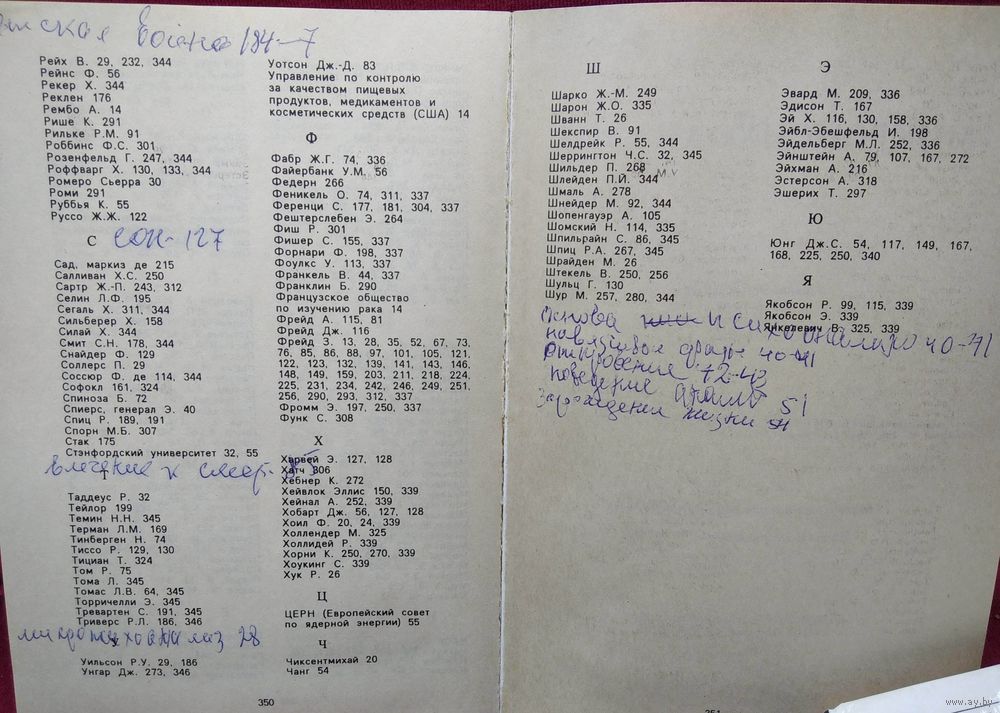 война 184-7
Рейх В. 29, 232, 344
Рейнс Ф. 56
Рекер Х. 344
Реклен 176
Рембо А. 14
Рише К. 291
Рильке Р.М. 91
Роббинс Ф.С. 301
Розенфельд Г. 247, 344
Роффварг Х. 130, 133, 344
Ромеро Сьерра 30
Роми 291
Руббья К. 55
Руссо Ж.Ж. 122
С сон-127
Сад, маркиз де 215
Салливан Х.С. 250
Сартр Ж.-П. 243, 312
Селин Л.Ф. 195
Сегаль Х. 311, 344
Сильберер Х. 158
Силай Х. 344
Смит С.Н. 178, 344
Снайдер Ф. 129
Соллерс П. 29
Соссюр Ф. де 114, 344
Софокл 161, 324
Спиноза Б. 72
Спиерс, генерал Э. 40
Спиц Р. 189, 191
Спорн М.Б. 307
Стак 175
Стэнфордский университет 32, 55
влечение к смер.
Т
Таддеус Р. 32
Тейлор 199
Темин Н.Н. 345
Терман Л.М. 169
Тинберген Н. 74
Тиссо Р. 129, 130
Тициан Т. 324
Том Р. 75
Тома Л. 345
Томас Л.В. 64, 345
Торричелли Э. 345
Тревартен С. 191, 345
Триверс Р.Л. 186, 346
микропсихоанализ 28
Уильсон Р.У. 29, 186
Унгар Дж. 273, 346
Уотсон Дж.-Д. 83
Управление по контролю
за качеством пищевых
продуктов, медикаментов и
косметических средств (США) 14
Ф
Фабр Ж.Г. 74, 336
Файербанк У.М. 56
Федерн 266
Феникель О. 74, 311, 337
Ференци С. 177, 181, 304, 337
Фештерслебен Э. 264
Фиш Р. 301
Фишер С. 155, 337
Форнари Ф. 198, 337
Фоулкс У. 113, 337
Франкель В. 44, 337
Франклин Б. 290
Французское общество
по изучению рака 14
Фрейд А. 115, 81
Фрейд Дж. 116
Фрейд З. 13, 28, 35, 52, 67, 73,
76, 85, 86, 88, 97, 101, 105, 121,
122, 123, 132, 139, 141, 143, 146,
148, 149, 159, 203, 211, 218, 224,
225, 231, 234, 242, 246, 249, 251,
256, 290, 293, 312, 337
Фромм Э. 197, 250, 337
Функ С. 308
Х
Харвей Э. 127, 128
Хатч 306
Хебнер К. 272
Хейвлок Эллис 150, 339
Хейнал А. 252, 339
Хобарт Дж. 56, 127, 128
Хоил Ф. 20, 24, 339
Холлендер М. 325
Холлидей Р. 339
Хорни К. 250, 270, 339
Хоукинг С. 339
Хук Р. 26
Ц
ЦЕРН (Европейский совет
по ядерной энергии) 55
Ч
Чиксентмихай 20
Чанг 54
350
Ш
Шарко Ж.-М. 249
Шарон Ж.О. 335
Шванн Т. 26
Шекспир В. 91
Шелдрейк Р. 55, 344
Шеррингтон Ч.С. 32, 345
Шильдер П. 268
Шлейден П.Й. 344
Шмаль А. 278
Шнейдер М. 92, 344
Шопенгауэр А. 105
Шомский Н. 114, 335
Шпильрайн С. 86, 345
Шпиц Р.А. 267, 345
Шрайден М. 26
Штекель В. 250, 256
Шульц Г. 130
Шур М. 257, 280, 344
Э
Эвард М. 209, 336
Эдисон Т. 167
Эй Х. 116, 130, 158, 336
Эйбл-Эбешфельд И. 198
Эйдельберг М.Л. 252, 336
Эйнштейн А. 79, 107, 167, 272
Эйхман А. 216
Эстерсон А. 318
Эшерих Т. 297
Ю
Юнг Дж.С. 54, 117, 149, 167,
168, 225, 250, 340
Я
Якобсон Р. 99, 115, 339
Якобсон Э. 339
Янкелевич В. 325, 339
основа психоанализа 40-41
навязчивое 40-41
откровение 42-43
поведение 51
Зарождения жизни
351
www.ay.by